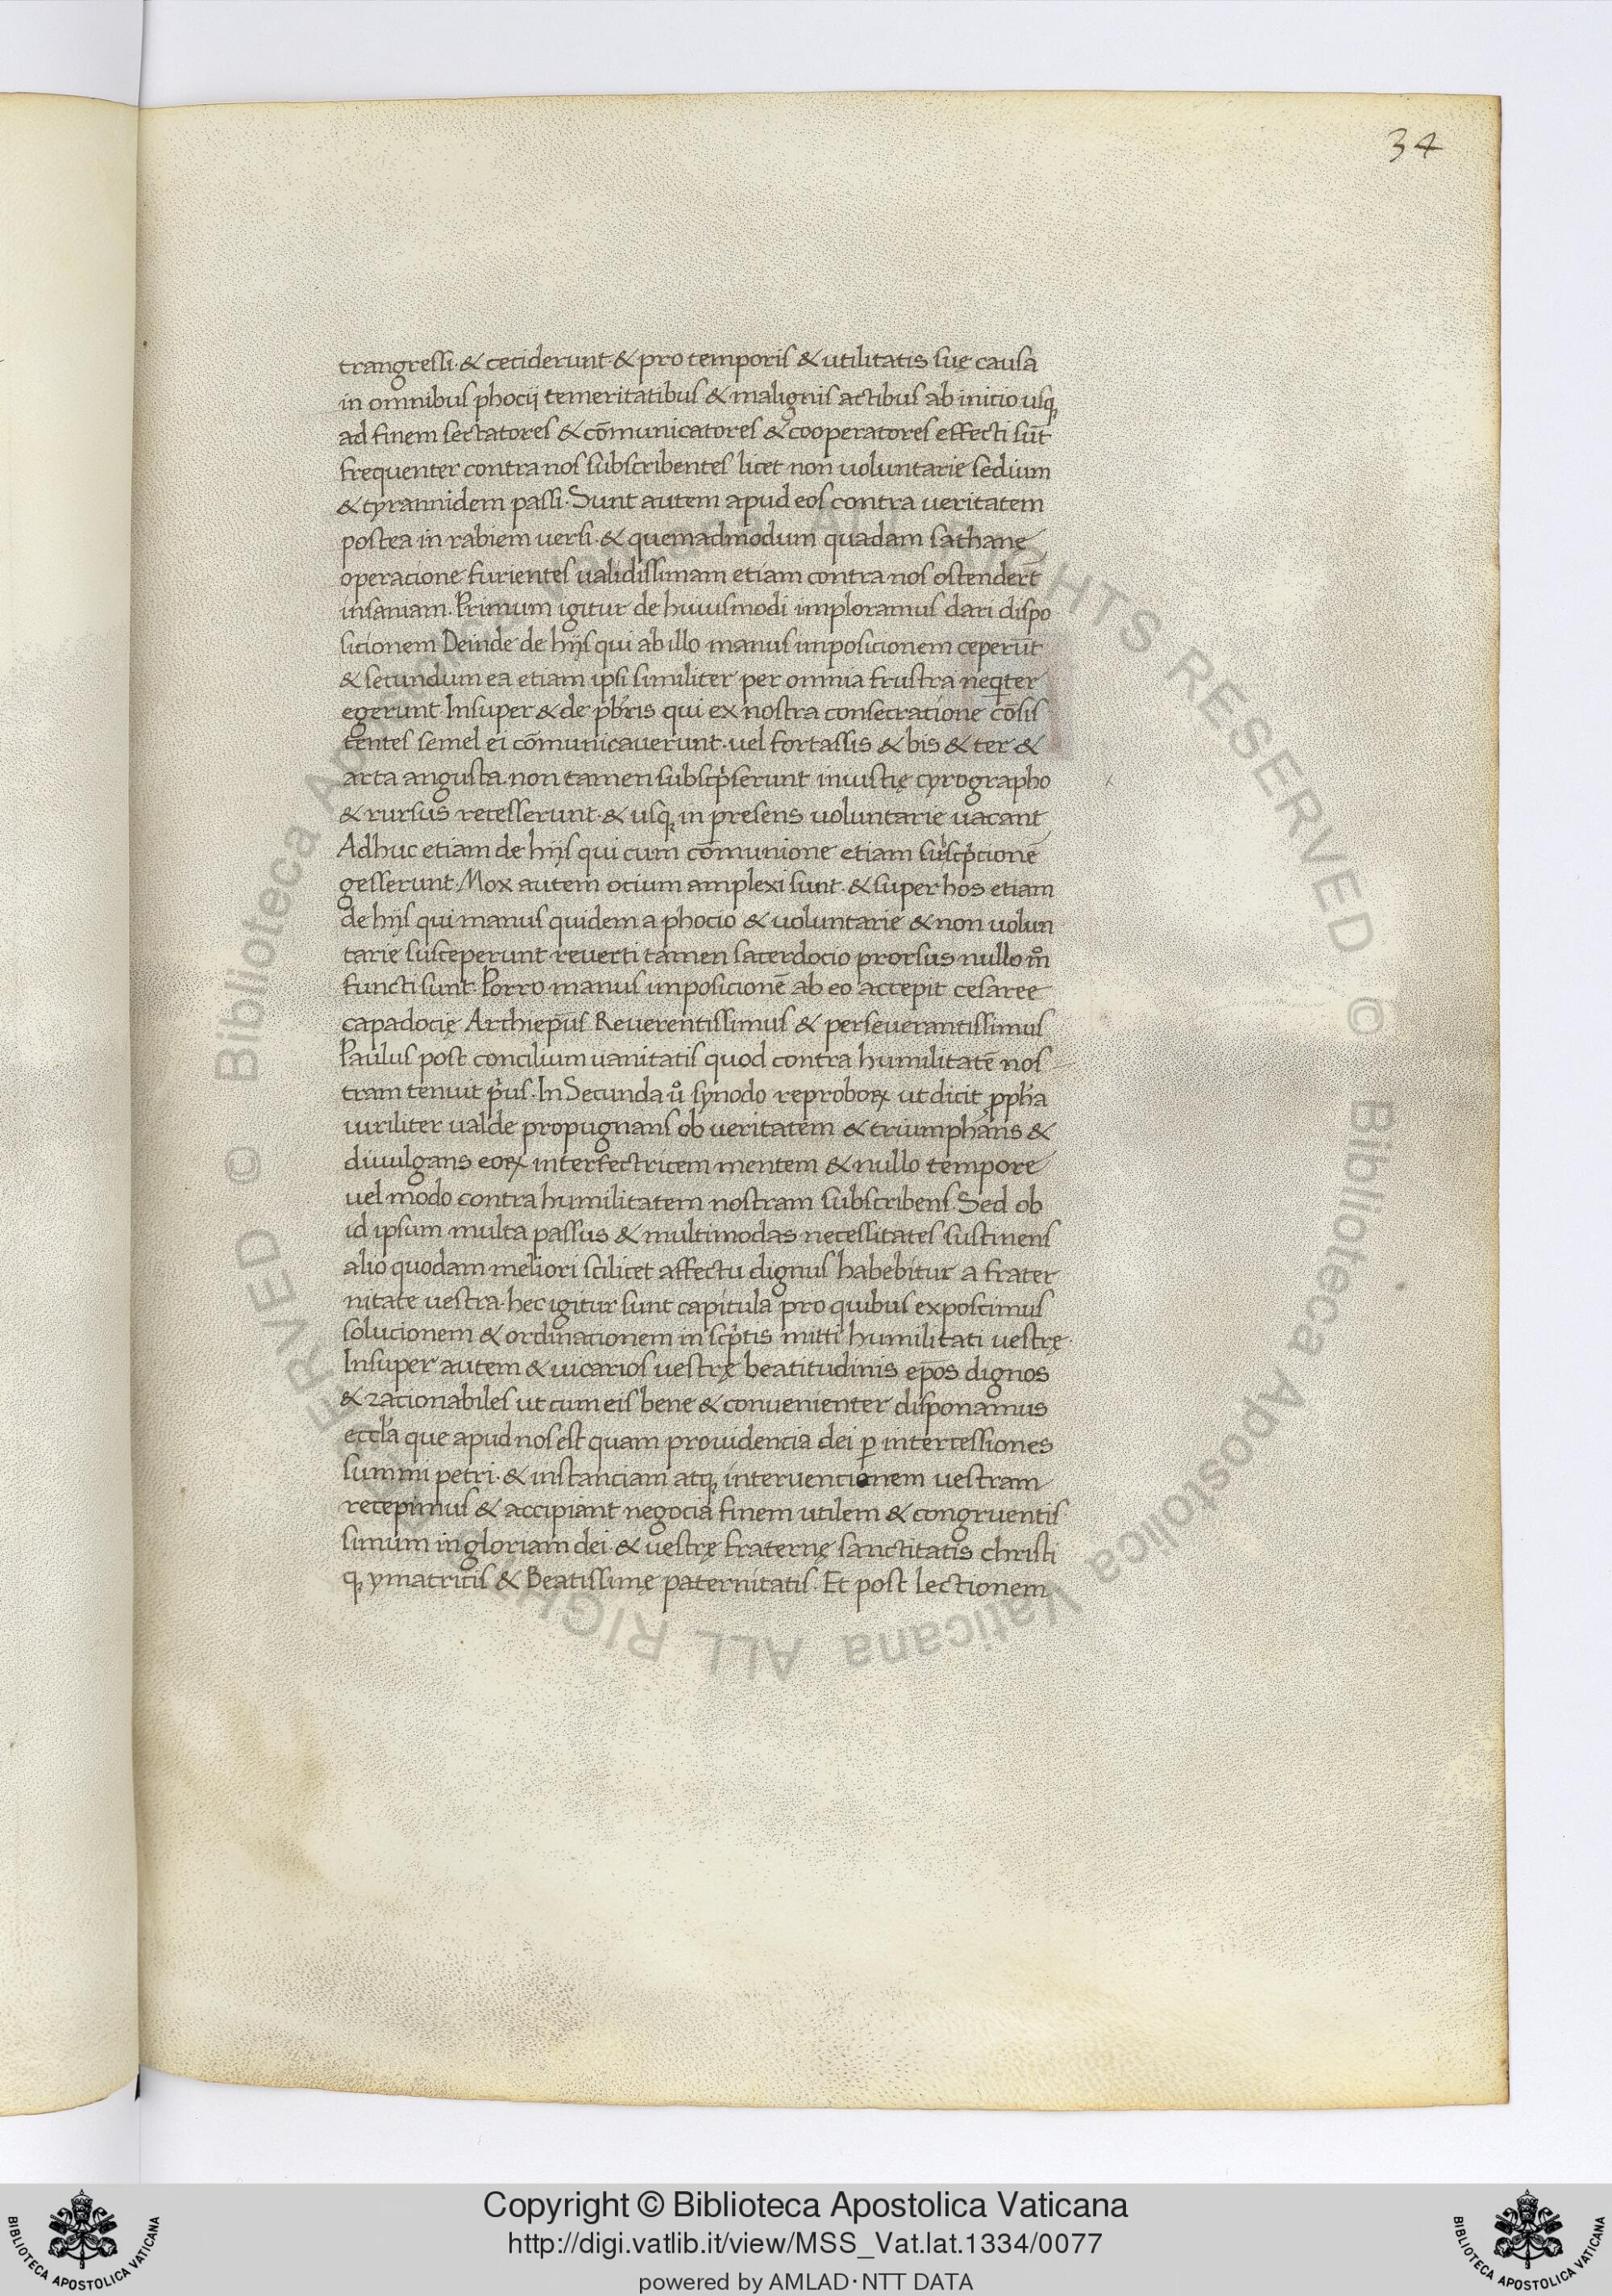 34
trangressi · & ceciderunt · & pro temporis & utilitatis suę causa
in omnibus phocij temeritatibus & malignis actibus ab inicio usq;
ad finem sectatores & cōmunicatores & cooperatores effecti sūt
frequenter contra nos subscribentes licet non uoluntarie sedium
& tyrannidem passi · Sunt autem apud eos contra ueritatem
postea in rabiem uersi · & quemadmodum quadam sathane
operacione furientes ualidissimam etiam contra nos ostendert̄
insaniam · Primum igitur de huiusmodi imploramus dari dispo
sitionem Deinde de hijs qui ab illo manus imposicionem ceperūt
& secundum ea etiam ipsi similiter per omnia frustra neq̇ter
egerunt · Insuper & de pb̄ris qui ex nostra consecratione cōsis
tentes semel ei cōmunicauerunt · uel fortassis & bis & ter &
arta angusta non tamen subscp̄serunt iniustię cyrographo
& rursus recesserunt · & usq; in presens uoluntarie uacant
Adhuc etiam de hijs qui cum cōmunione etiam sub̄scp̄cionē
gesserunt · Mox autem ocium amplexi sunt · & super hos etiam
de hijs qui manus quidem a phocio & uoluntarie & non uolun
tarie susceperunt reuerti tamen sacerdocio prorsus nullo m̊
functi sunt · Porro manus imposicionē ab eo accepit cesaree
capadocię Archiep̄us Reuerentissimus & perseuerantissimus
Paulus post concilium uanitatis quod contra humilitatē nos
tram tenuit p̄us · In Secunda ů synodo reproboꝝ ut dicit ꝓph̄a
uiriliter ualde propugnans ob ueritatem & triumphans &
diuulgans eoꝝ interfectricem mentem & nullo tempore
uel modo contra humilitatem nostram subscribens · Sed ob
id ipsum multa passus & multimodas necessitates sustinens
alio quodam meliori scilicet affectu dignus habebitur a frater
nitate uestra · hec igitur sunt capitula pro quibus exposcimus
solucionem & ordinacionem in scp̄tis mitti humilitati uestrę ·
Insuper autem & uicarios uestrę beatitudinis ep̄os dignos
& racionabiles ut cum eis bene & conuenienter disponamus
eccl̄a que apud nos est quam prouidencia dei ꝑ intercessiones
summi petri · & instanciam atq; interuencionem uestram
recepimus & accipiant negocia finem utilem & congruentis
simum in gloriam dei · & uestrę fraternę sanctitatis christi
q; ymatritis & Beatissimę paternitatis · Et post lectionem
© Biblioteca Apostolica Vaticana ALL RIGHTS RESERVED
© Biblioteca Apostolica Vaticana ALL RIGHTS RESERVED
Copyright © Biblioteca Apostolica Vaticana
http://digi.vatlib.it/view/MSS_Vat.lat.1334/0077
powered by AMLAD·NTT DATA
BIBLIOTECA APOSTOLICA VATICANA
BIBLIOTECA APOSTOLICA VATICANA